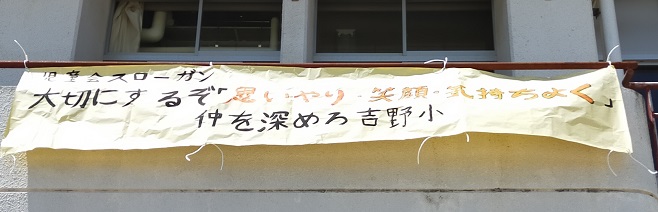 児童会スローガン
大切にするぞ「思いやり・笑顔・気持ちよく」
仲を深めろ吉野小